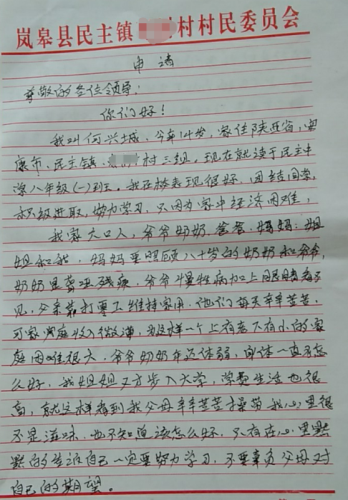 岚皋县民主镇 村村民委员会
申请
尊敬的各位领导：
你们好！
我叫何兴城，今年14岁，家住陕西省，安
康市、民主镇、 村三组。现在就读于民主中
学八年级(一)班。我在校表现很好，团结同学，
积极进取，努力学习，只因为家中经济困难，
我家六口人，爷爷奶奶 爸爸、妈妈、姐
姐和我，妈妈要照顾八十岁的奶奶和爷爷，
奶奶是 残疾，爷爷慢性病加上眼睛看不
见，父亲靠打零工维持家用，他们每天辛辛苦苦，
可家庭收入微薄，我这样一个上有老下有小的家
庭困难很大，爷爷奶奶年迈体弱，身体一直不怎
么好，我姐姐又方步入大学，学费生活也很
高，就这样看到我父母辛辛苦苦操劳我心里很
不是滋味，也不知道该怎么好，只有在心里默
默的告诉自己一定要努力学习，不要辜负父母对
自己的期望。